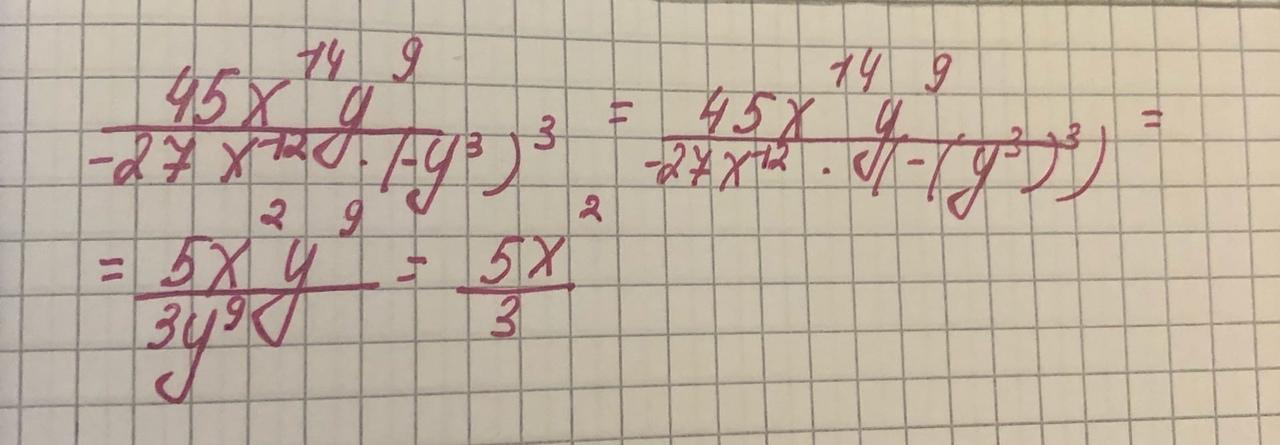 45x¹⁴y⁹/(-27x¹² · (-y³)³) = 45x¹⁴y⁹/(-27x¹² · (-(y³)³)) =
= 5x²y⁹/(3y⁹) = 5x²/3